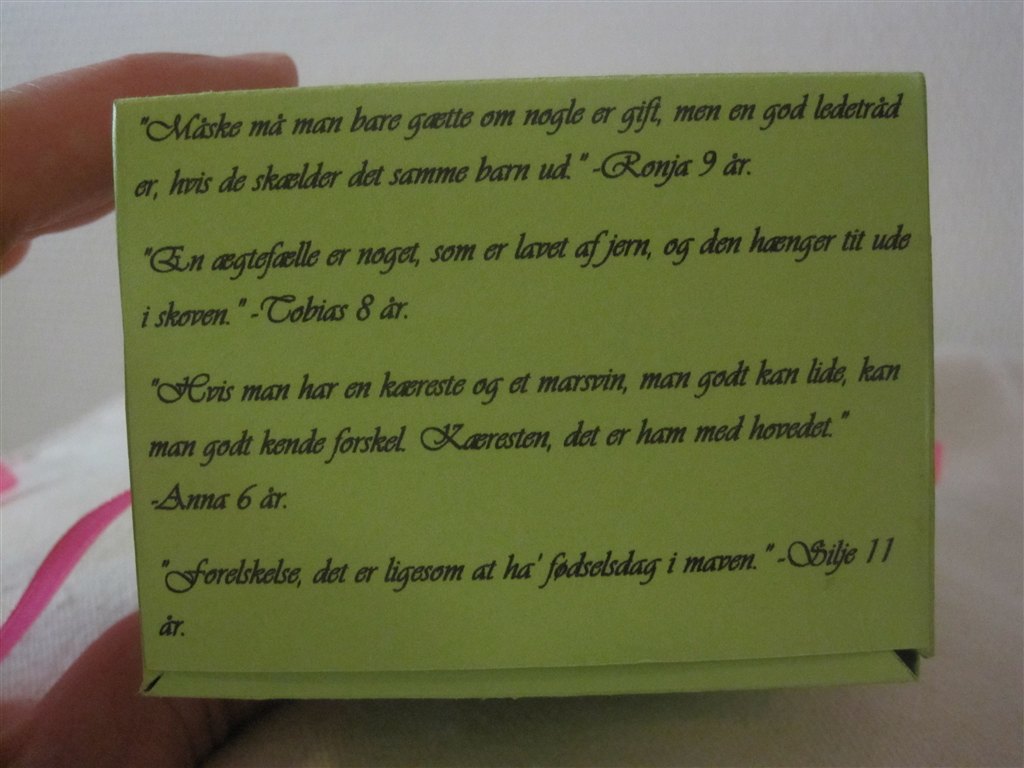 "Måske må man bare gætte om nogle er gift, men en god ledetråd
er, hvis de skælder det samme barn ud." -Ronja 9 år.
"En ægtefælle er noget, som er lavet af jern, og den hænger tit ude
i skoven." -Tobias 8 år.
"Hvis man har en kæreste og et marsvin, man godt kan lide, kan
man godt kende forskel. Kæresten, det er ham med hovedet."
-Anna 6 år.
"Forelskelse, det er ligesom at ha' fødselsdag i maven." -Silje 11
år.